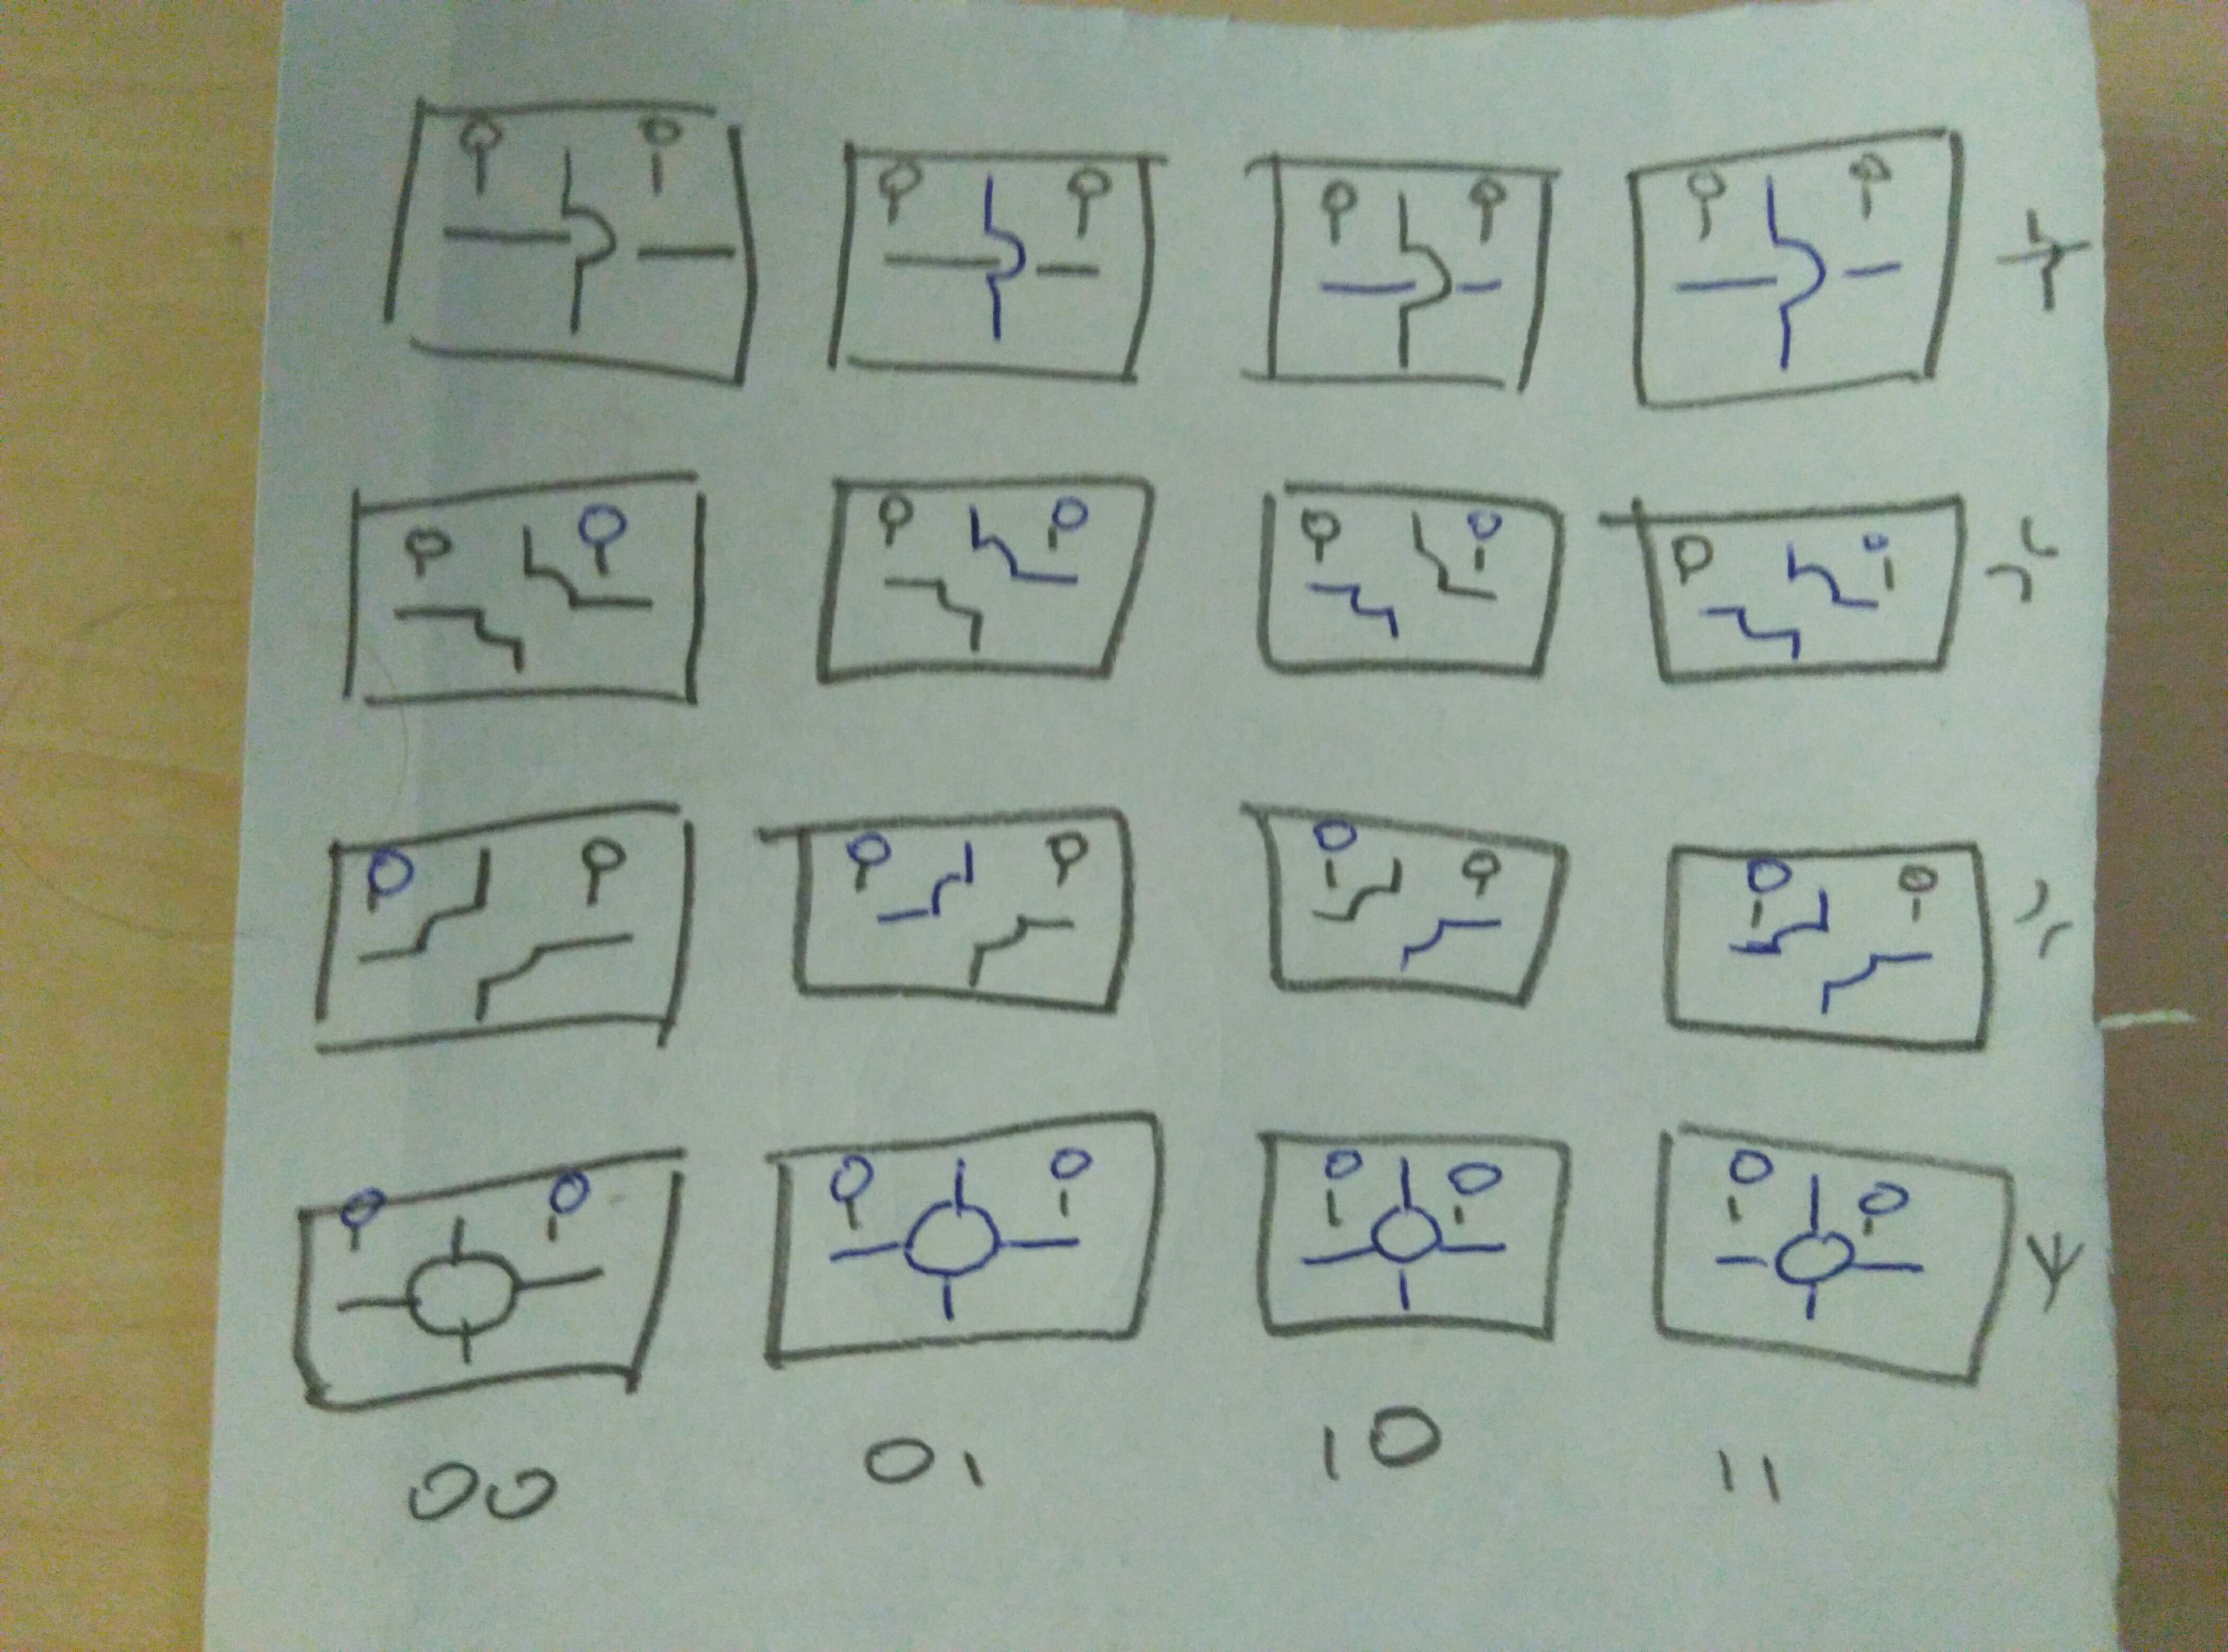 00 01 10 11